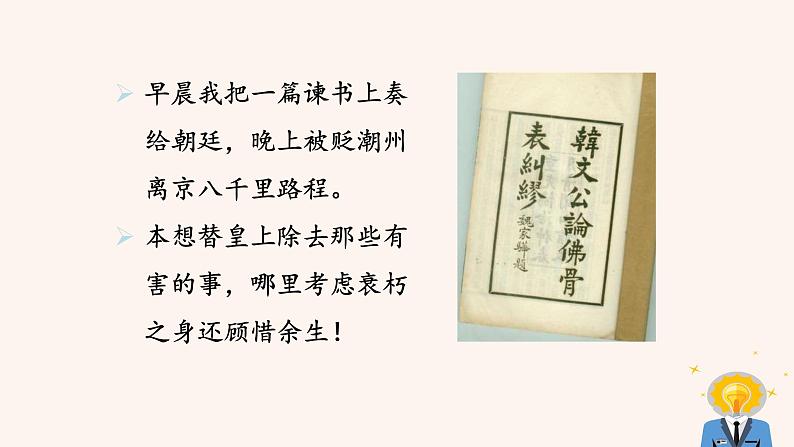 早晨我把一篇谏书上奏
给朝廷，晚上被贬潮州
离京八千里路程。
本想替皇上除去那些有
害的事，哪里考虑衰朽
之身还顾惜余生！
韓文公論佛骨
表糾繆
魏家驊題